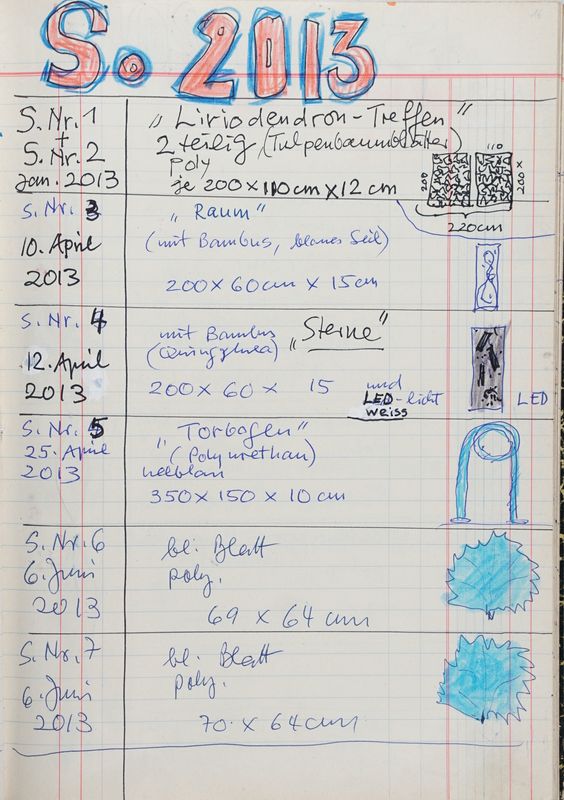 S. 2013
S. Nr. 1
+
S. Nr. 2
Jan. 2013
„Liriodendron-Treffen"
2 teilig, (Tulpenbaumblätter)
Poly
je 200 x 110 cm x 12 cm
110
200
200 x
220 cm
S. Nr. 3
10. April
2013
„Raum"
(mit Bambus, blaues Seil)
200 x 60 cm x 15 cm
S. Nr. 4
12. April
2013
mit Bambus „Sterne"
200 x 60 x 15
und
LED-licht
weiss
LED
S. Nr. 5
25. April
2013
„Torbogen"
(Polyurethan)
hellblau
350 x 150 x 10 cm
S. Nr. 6
6. Juni
2013
bl. Blatt
poly.
69 x 64 cm
S. Nr. 7
6. Juni
2013
bl. Blatt
poly.
70. x 64 cm